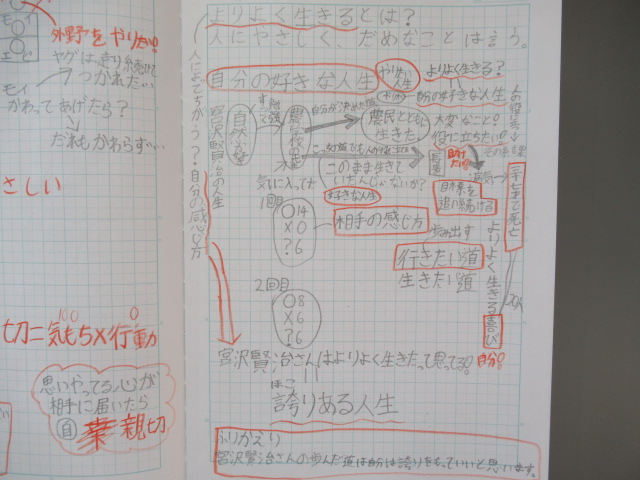 モイ
エビ
外野をやりたい!
ヤゲは走り続けて
つかれたい
モイ
かわってあげたら?
だれもかわらず…
さしい
100
0
切=気もち×行動
思いやってる心が
相手に届いたら
自
親切
よりよく生きるとは?
人にやさしく、だめなことは言う。
人によってちがう?自分の感じ方
自分の好きな人生
やりたい人生
よりよく生きる?
自分の好きな人生
宮沢賢治の人生
自然が好き
農学校の先生
自分が決めた道
農民とともに
生きたい
大変なこと!
役に立ちたい!
このまま生きて
いけたんじゃないか?
好きな人生
気に入ってた
目標を
追い続ける
三十七才で死亡
1回目
○14
×0
?6
相手の感じ方
歩み出す
行きたい道
生きたい道
よりよく生きる喜び
自分!
2回目
○8
×6
?6
宮沢賢治さんはよりよく生きたって思ってる!
ほこ
誇りある人生
ふりかえり
宮沢賢治さんの歩んだ道は自分は誇りをもっていいと思います。